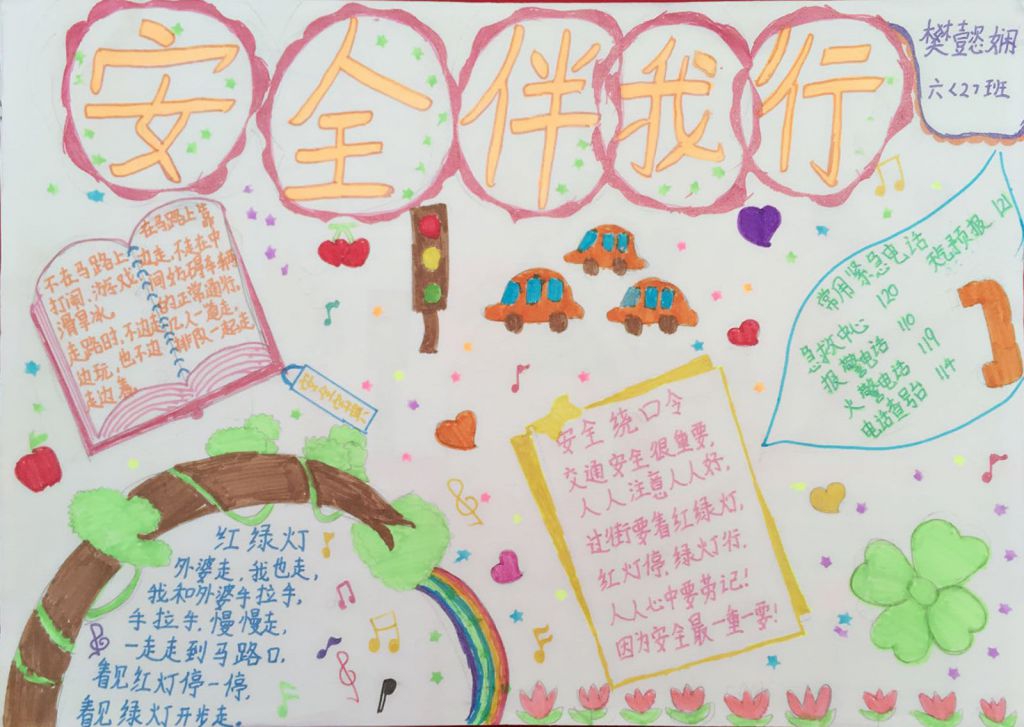 安全伴我行
樊懿娴
六<2>班
不在马路上
打闹、游戏、
滑旱冰。
走路时,不边走
边玩,也不边
走边看
在马路上靠
边走,不走在中
间妨碍车辆
的正常通行,
几人一道走,
排队一起走
安全字典
常用紧急电话
天气预报 121
急救中心 120
报警电话 110
火警电话 119
电话查号台 114
安全绕口令
交通安全很重要,
人人注意人人好,
过街要看红绿灯,
红灯停,绿灯行.
人人心中要劳记!
因为安全最一重一要!
红绿灯
外婆走,我也走,
我和外婆手拉手,
手拉手,慢慢走,
一走走到马路口,
看见红灯停一停,
看见绿灯开步走。